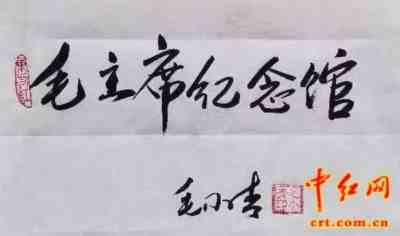 毛主席纪念馆
毛小青
中红网
crt.com.cn